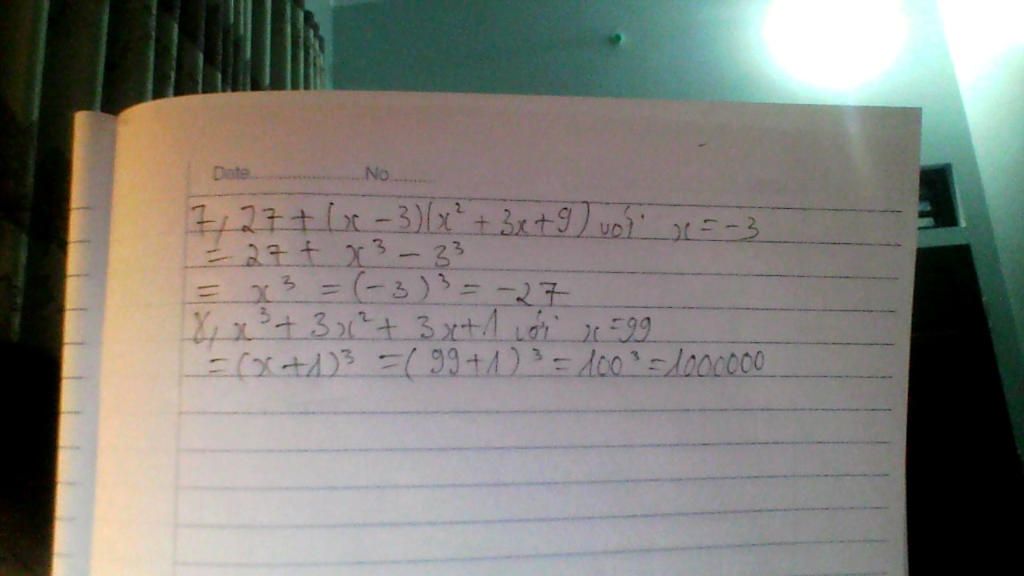 Date.................... No........
7, 27 + (x - 3)(x² + 3x + 9) với x = -3
= 27 + x³ - 3³
= x³ = (-3)³ = -27
8, x³ + 3x² + 3x + 1 với x = 99
= (x + 1)³ = (99 + 1)³ = 100³ = 1000000